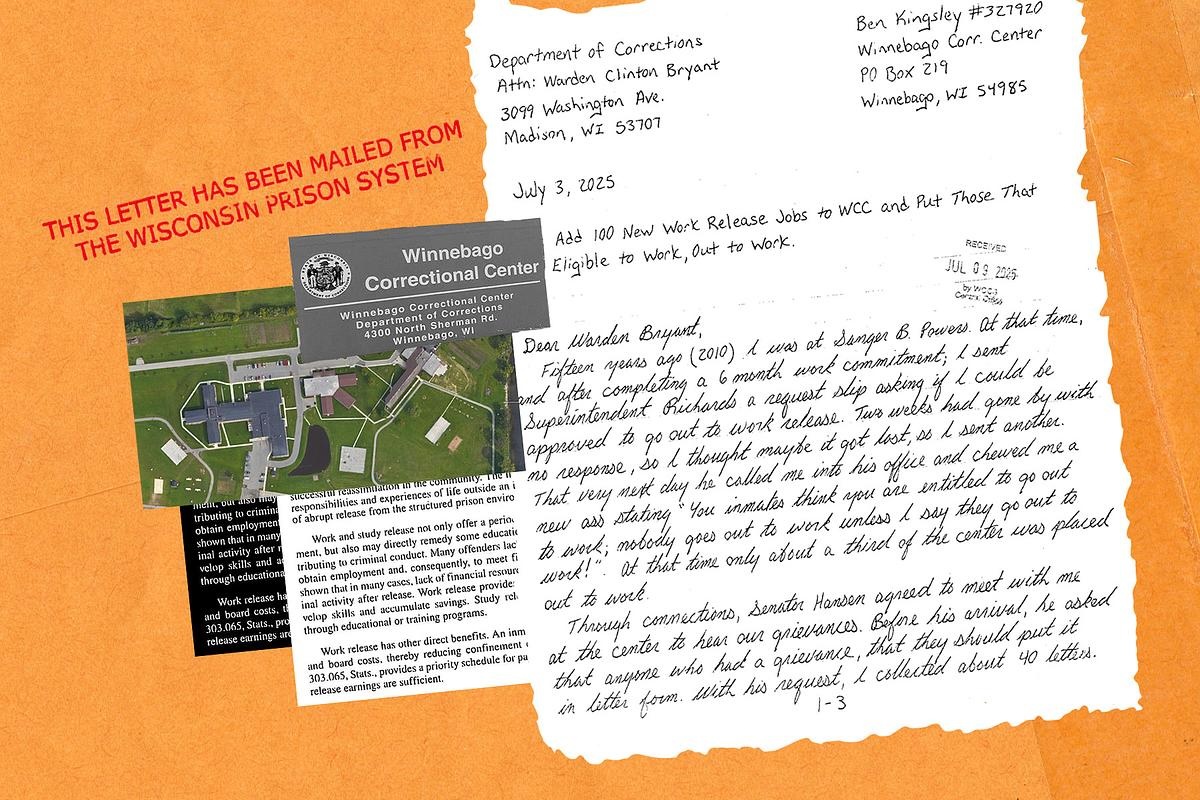 Department of Corrections
Attn: Warden Clinton Bryant
3099 Washington Ave.
Madison, WI 53707
Ben Kingsley #327920
Winnebago Corr. Center
PO Box 219
Winnebago, WI 54985
July 3, 2025
Add 100 New Work Release Jobs to WCC and Put Those That
Eligible to Work, Out to Work.
RECEIVED
JUL 09 2025
Dear Warden Bryant,
Fifteen years ago (2010) I was at Sanger B. Powers. At that time,
and after completing a 6 month work commitment; I sent
Superintendent Richards a request slip asking if I could be
approved to go out to work release. Two weeks had gone by with
no response, so I thought maybe it got lost, so I sent another.
That very next day he called me into his office and chewed me a
new ass stating "You inmates think you are entitled to go out
to work; nobody goes out to work unless I say they go out to
work!". At that time only about a third of the center was placed
out to work.
Through connections, Senator Hansen agreed to meet with me
at the center to hear our grievances. Before his arrival, he asked
that anyone who had a grievance, that they should put it
in letter form. With his request, I collected about 40 letters.
1-3
THIS LETTER HAS BEEN MAILED FROM
THE WISCONSIN PRISON SYSTEM
Winnebago
Correctional Center
Winnebago Correctional Center
Department of Corrections
4300 North Sherman Rd.
Winnebago, WI
successful reassimilation in the community. The
responsibilities and experiences of life outside an i
of abrupt release from the structured prison enviro
Work and study release not only offer a perio
ment, but also may directly remedy some educatio
tributing to criminal conduct. Many offenders lac
obtain employment and, consequently, to meet fi
shown that in many cases, lack of financial resourc
inal activity after release. Work release provide
velop skills and accumulate savings. Study rel
through educational or training programs.
Work release has other direct benefits. An inm
and board costs, thereby reducing confinement
303.065, Stats., provides a priority schedule for pa
release earnings are sufficient.
ment, but also may
tributing to crimina
obtain employment
shown that in many
inal activity after r
velop skills and a
through educationa
Work release ha
and board costs, t
303.065, Stats., pro
release earnings are